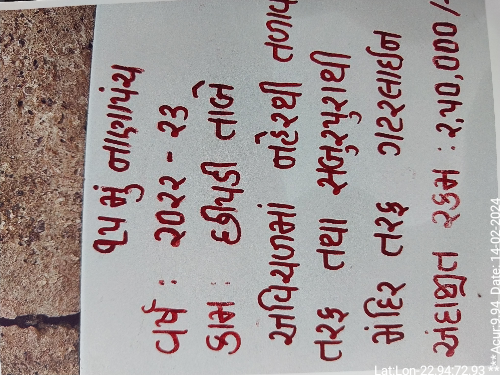 ૧૫ મું નાણાપંચ
વર્ષ : ૨૦૨૨ - ૨૩
કામ : છીપડી તાબે
અવિચળમાં નહેરથી તળાવ
તરફ તથા સબુરપુરાથી
મંદિર તરફ ગટરલાઈન
અંદાજીત રકમ : ૨,૫૦,૦૦૦/-
Lat:Lon-22.94:72.93
***Acur:9.94 Date: 14-02-2024